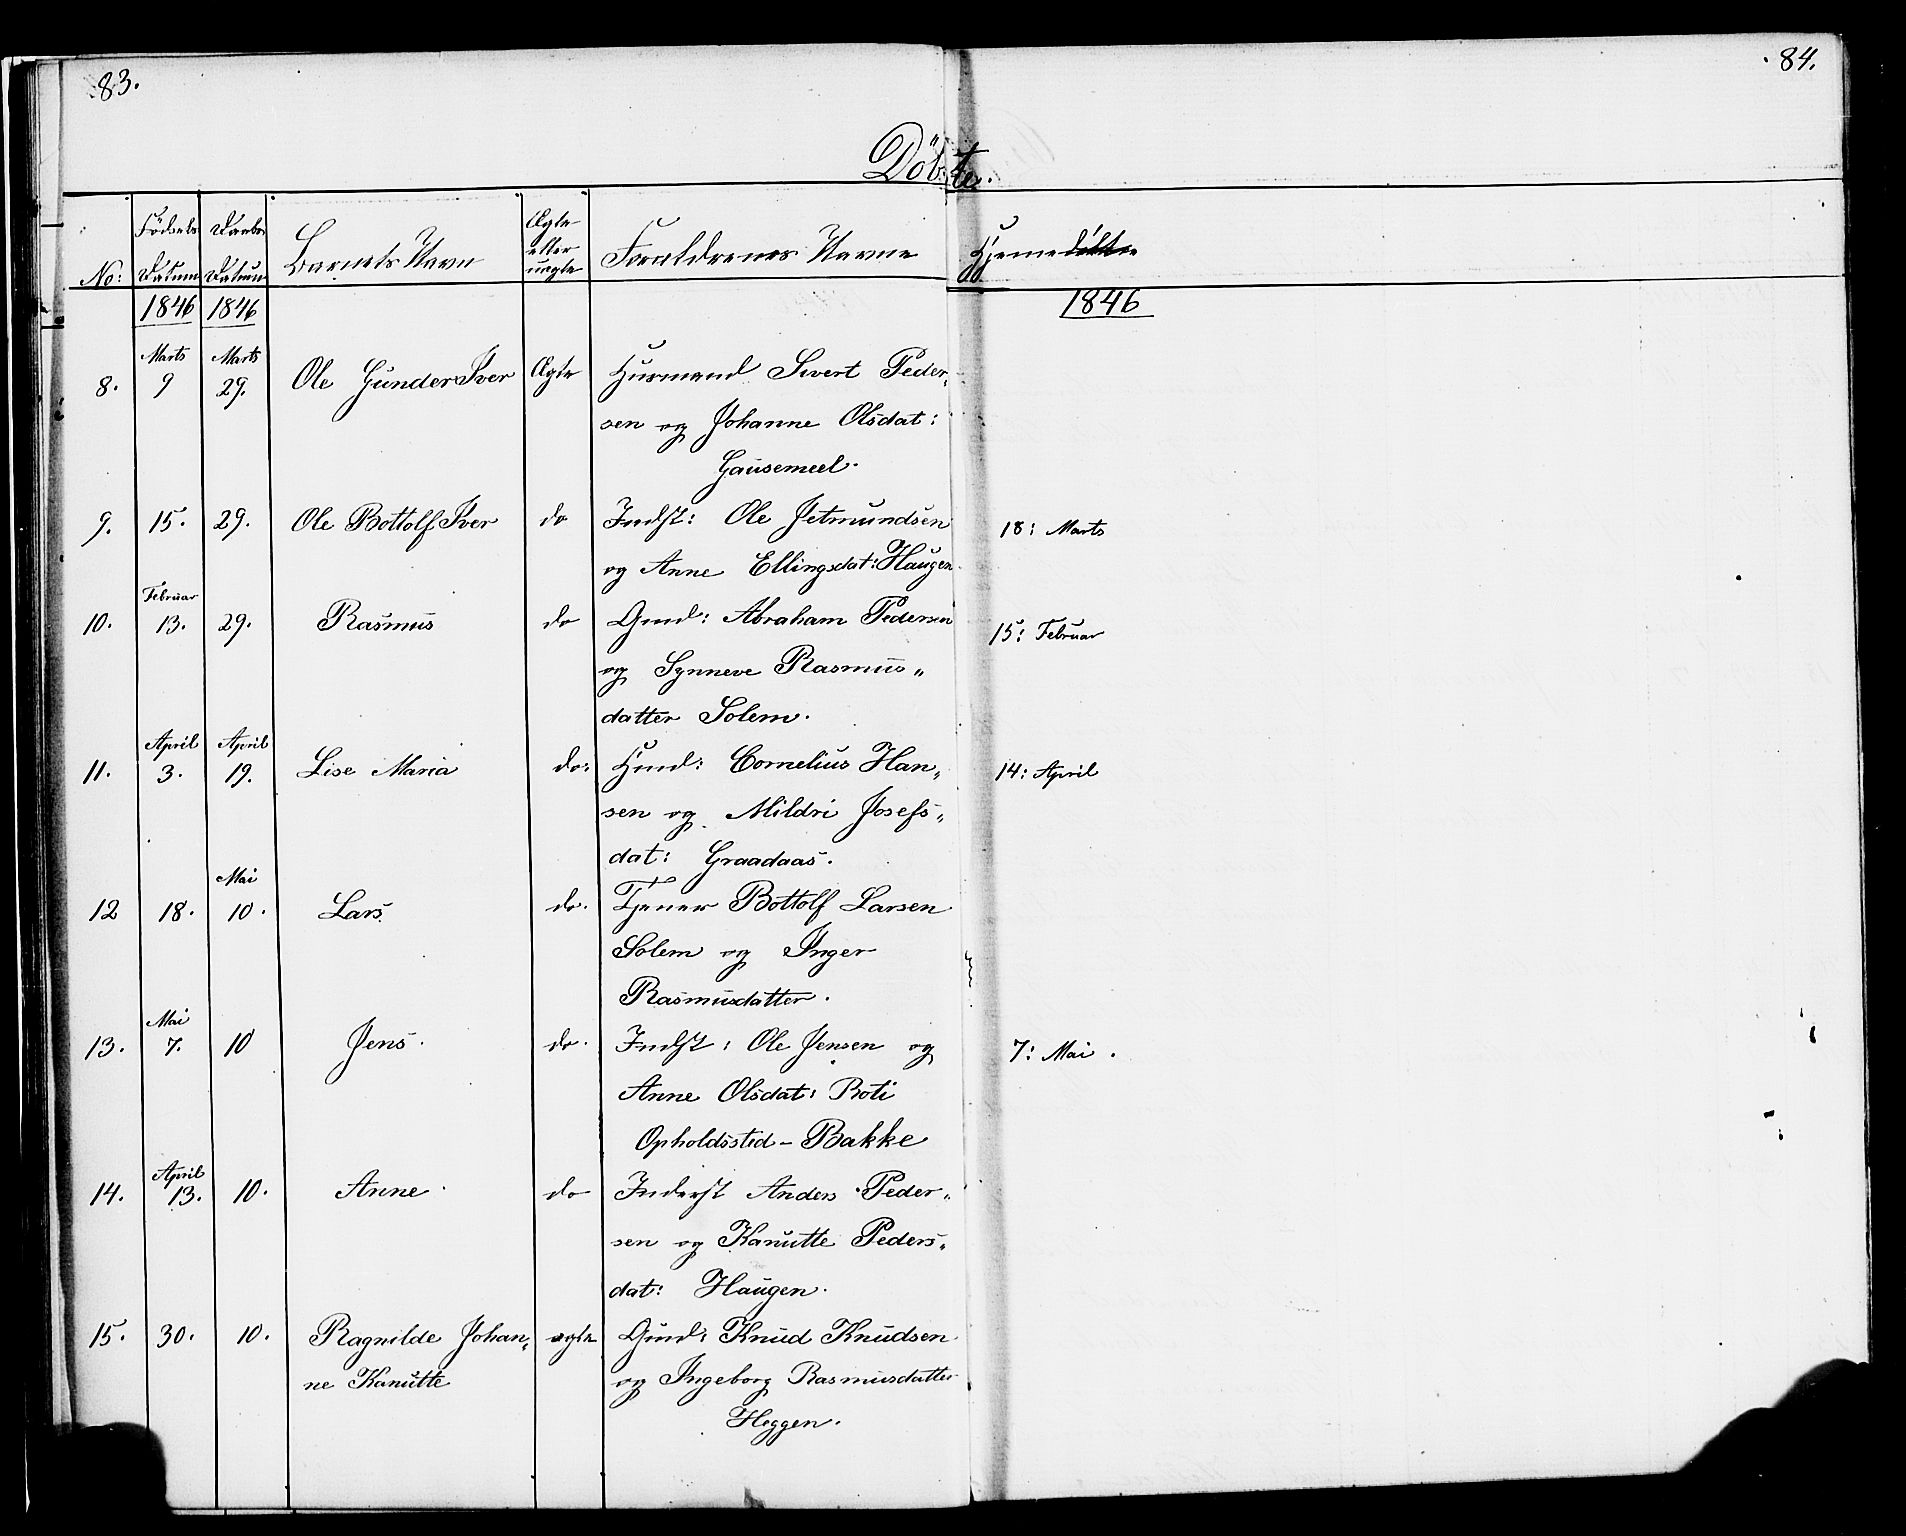 83.
84.
Döbte.
No: Födsels Datum Daabs Datum Barnets Navn Ægte eller uægte Foræ­ldrenes Navne Hjemedöbte
1846 1846 1846
Marts Marts
8. 9 29. Ole Gunder Iver Ægte Husmand Sivert Peder„
sen og Johanne Olsdat:
Gausemeel.
9. 15. 29. Ole Bottolf Iver do Indst: Ole Jetmundsen 18: Marts
og Anne Ellingsdat: Haugen
Februar
10. 13. 29. Rasmus do Gmd: Abraham Pedersen 15: Februar
og Synneve Rasmus„
datter Solem.
April April
11. 3. 19. Lise Maria do: Hmd: Cornelius Han„ 14: April
sen og Mildri Josefs„
dat: Graadaas.
Mai
12 18. 10. Lars. do. Tjener Bottolf Larsen
Solem og Inger
Rasmusdatter.
Mai
13. 7. 10 Jens. do. Indst: Ole Jensen og 7: Mai.
Anne Olsdat: Roti
Opholdssted - Bakke
April
14. 13. 10. Anne. do Inderst Anders Peder„
sen og Kanutte Peders„
dat: Haugen.
15. 30. 10. Ragnilde Johan„ ægte Gmd: Knud Knudsen
ne Kanutte og Ingeborg Rasmusdatter
Heggen.